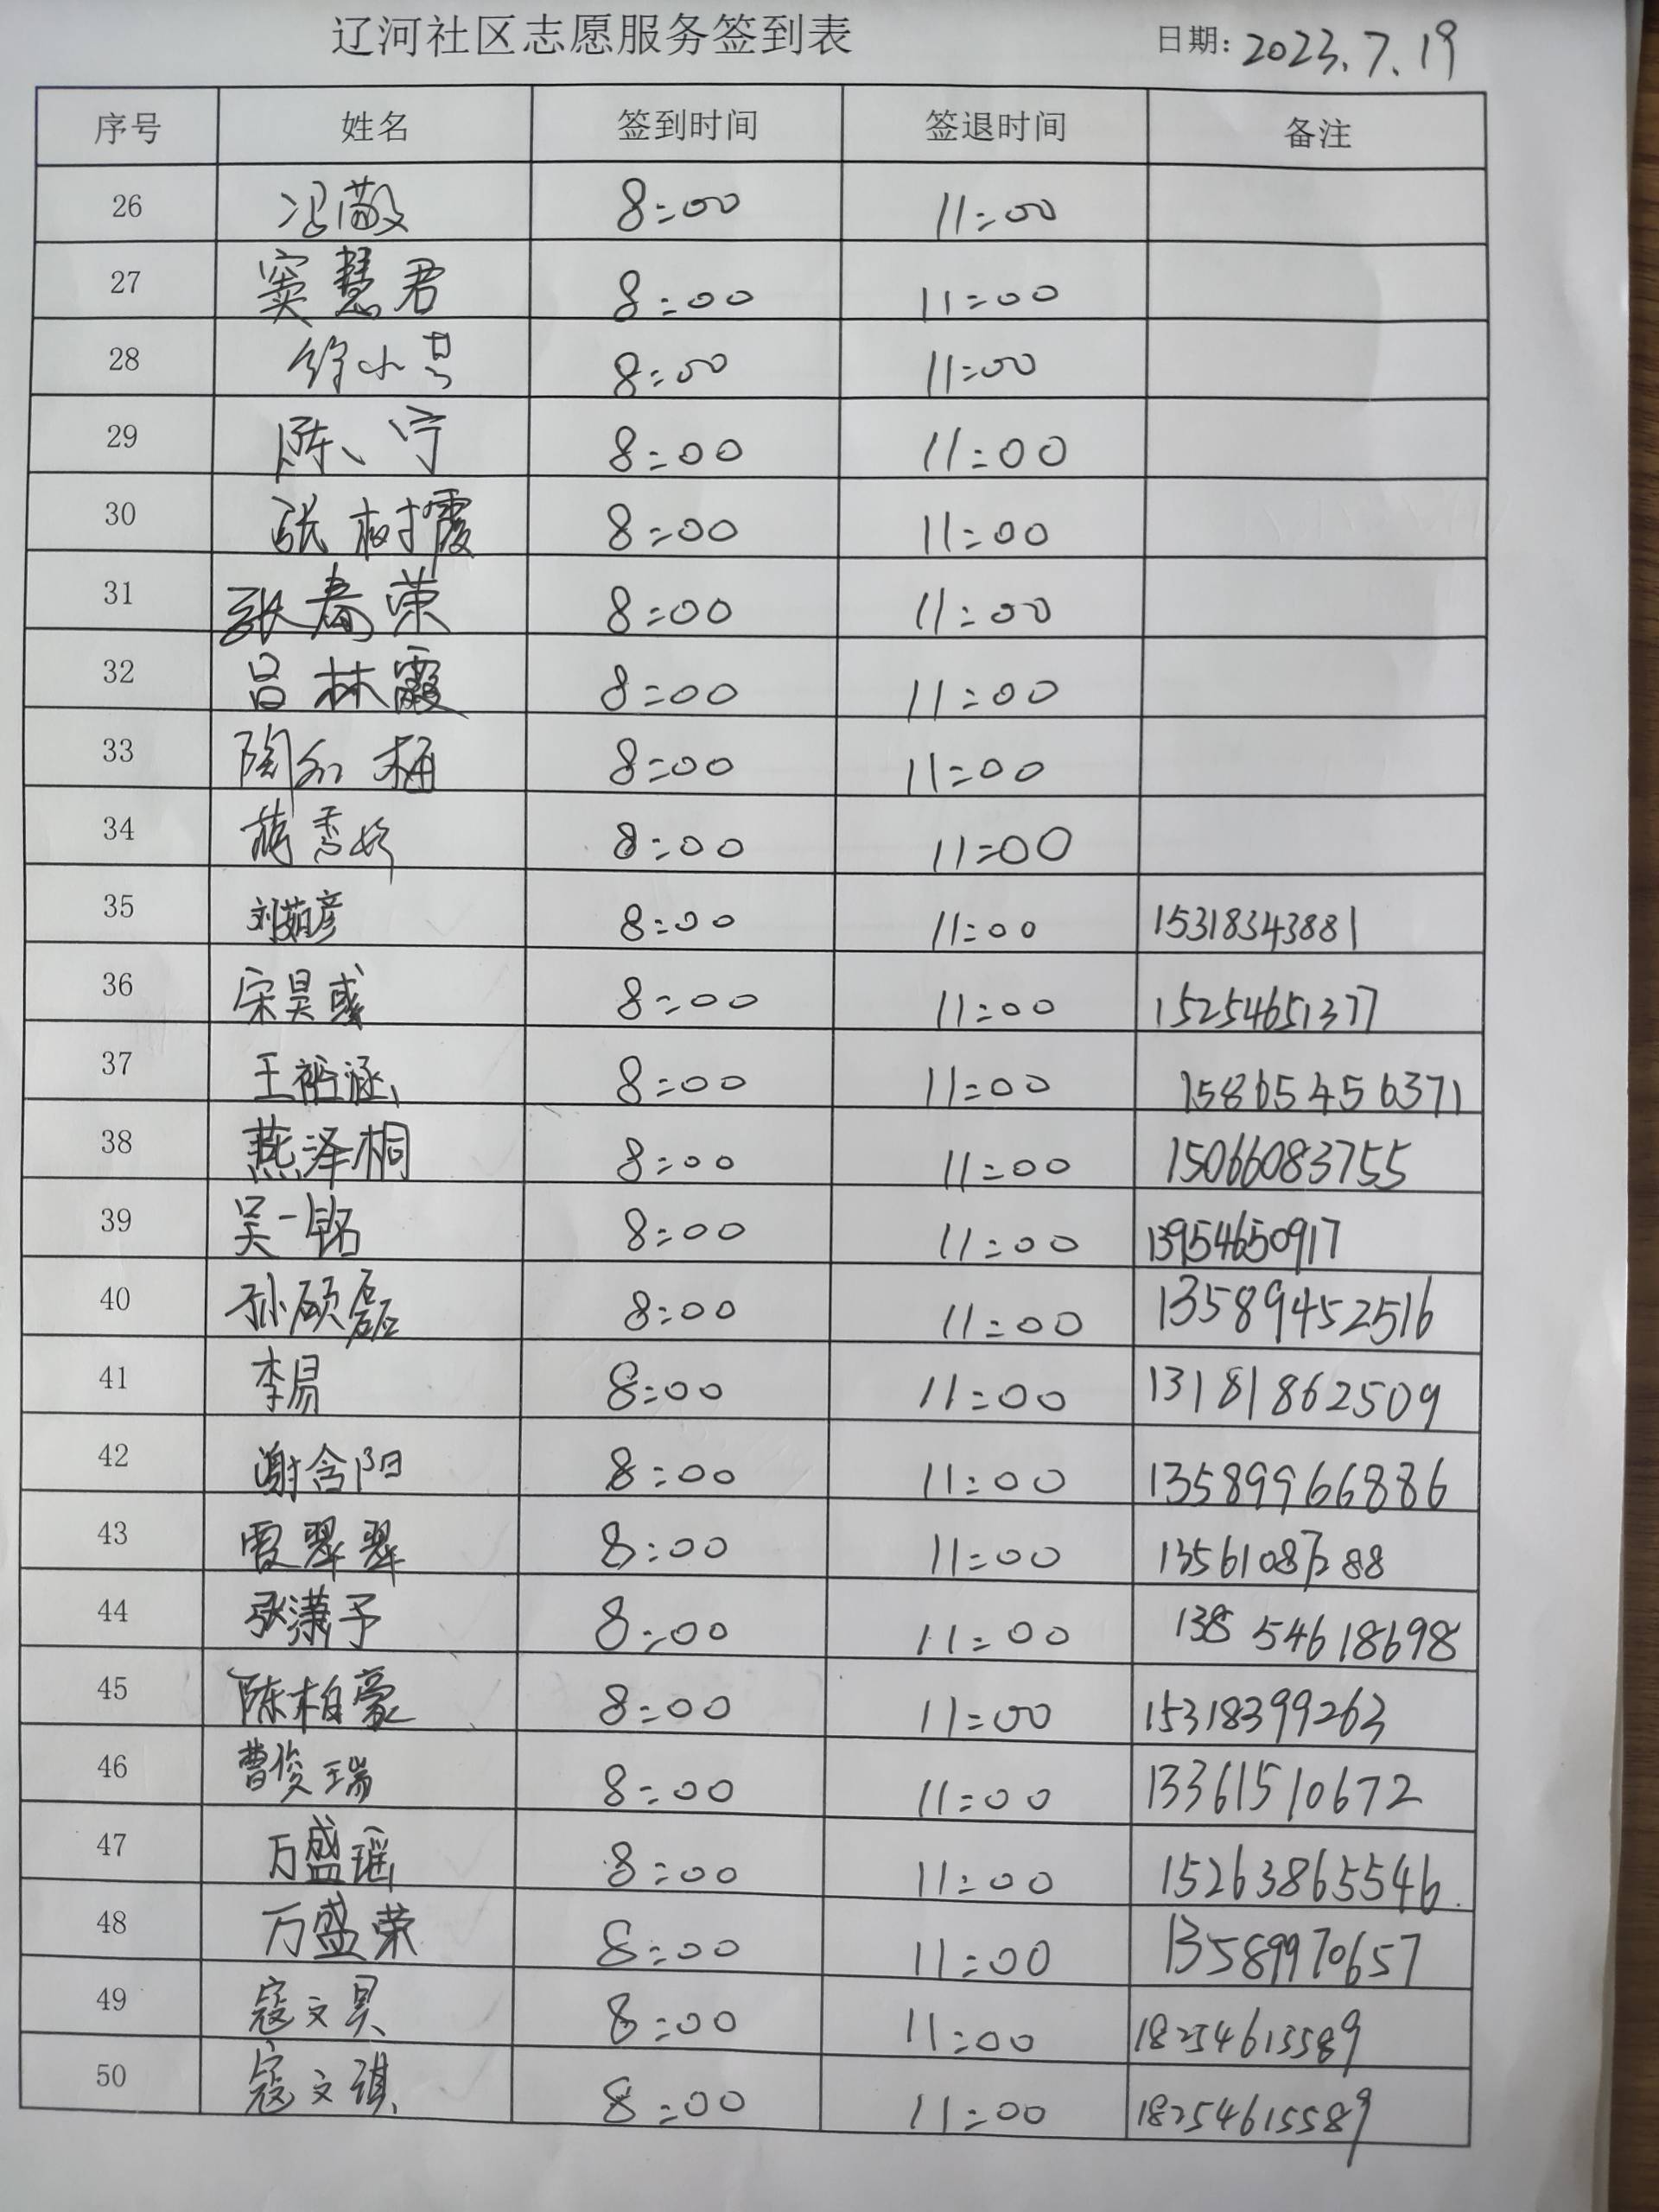 辽河社区志愿服务签到表 日期: 2023.7.19
序号 姓名 签到时间 签退时间 备注
26 冯敬 8:00 11:00
27 窦慧君 8:00 11:00
28 徐小 8:00 11:00
29 陈宁 8:00 11:00
30 张树霞 8:00 11:00
31 张春荣 8:00 11:00
32 吕林霞 8:00 11:00
33 陶 梅 8:00 11:00
34 蒋秀 8:00 11:00
35 刘茹彦 8:00 11:00 15318343881
36 宋昊彧 8:00 11:00 15254651377
37 王裕涵 8:00 11:00 15865456371
38 燕泽桐 8:00 11:00 15066083755
39 吴一铭 8:00 11:00 13954650917
40 孙硕磊 8:00 11:00 13589452516
41 李易 8:00 11:00 13181862509
42 谢含阳 8:00 11:00 13589966886
43 贾翠翠 8:00 11:00
44 张潇予 8:00 11:00 138 54618698
45 陈柏豪 8:00 11:00 15318399263
46 曹俊瑞 8:00 11:00 13361510672
47 万盛瑶 8:00 11:00 15263865546
48 万盛荣 8:00 11:00 13589970657
49 寇文具 8:00 11:00
50 寇文琪 8:00 11:00 18254615589